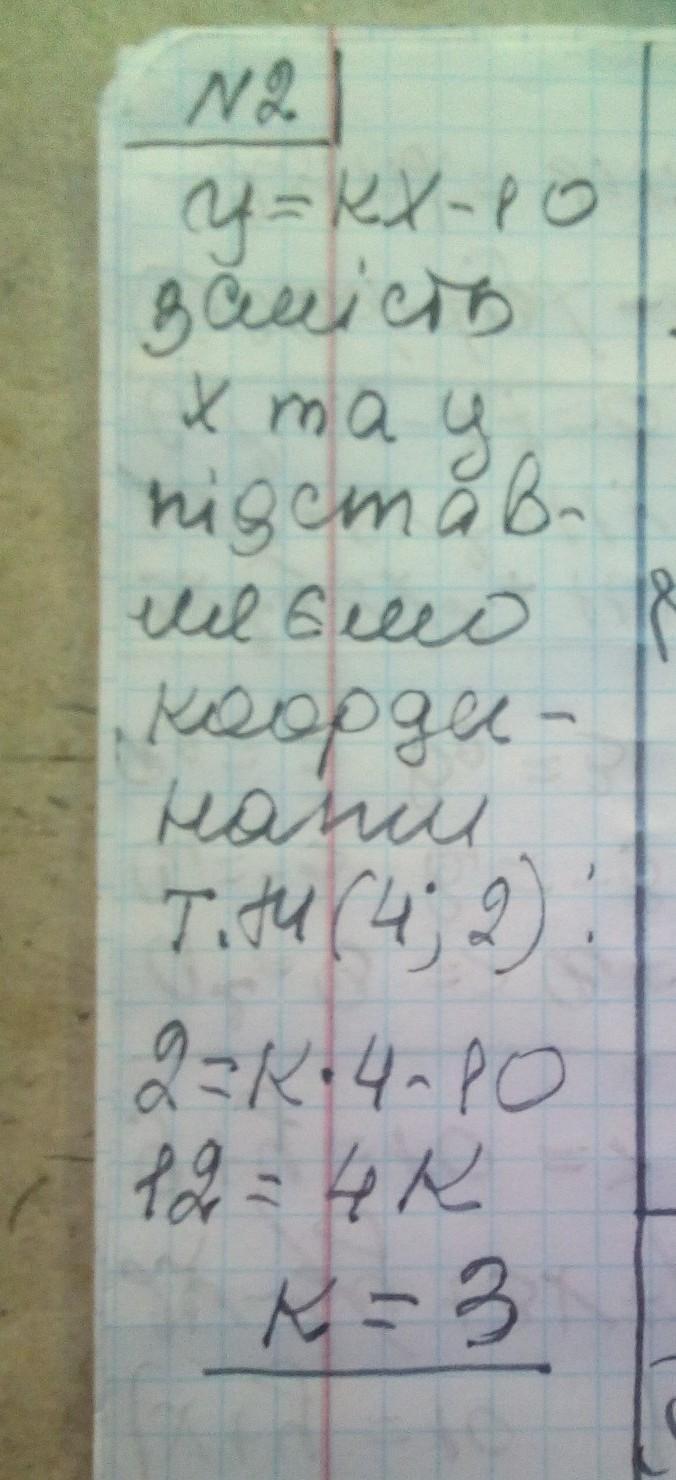 N2
y = kx - 10
замість
x та y
підстав-
ляємо
коорди-
нати
т. М (4; 2):
2 = k · 4 - 10
12 = 4k
k = 3